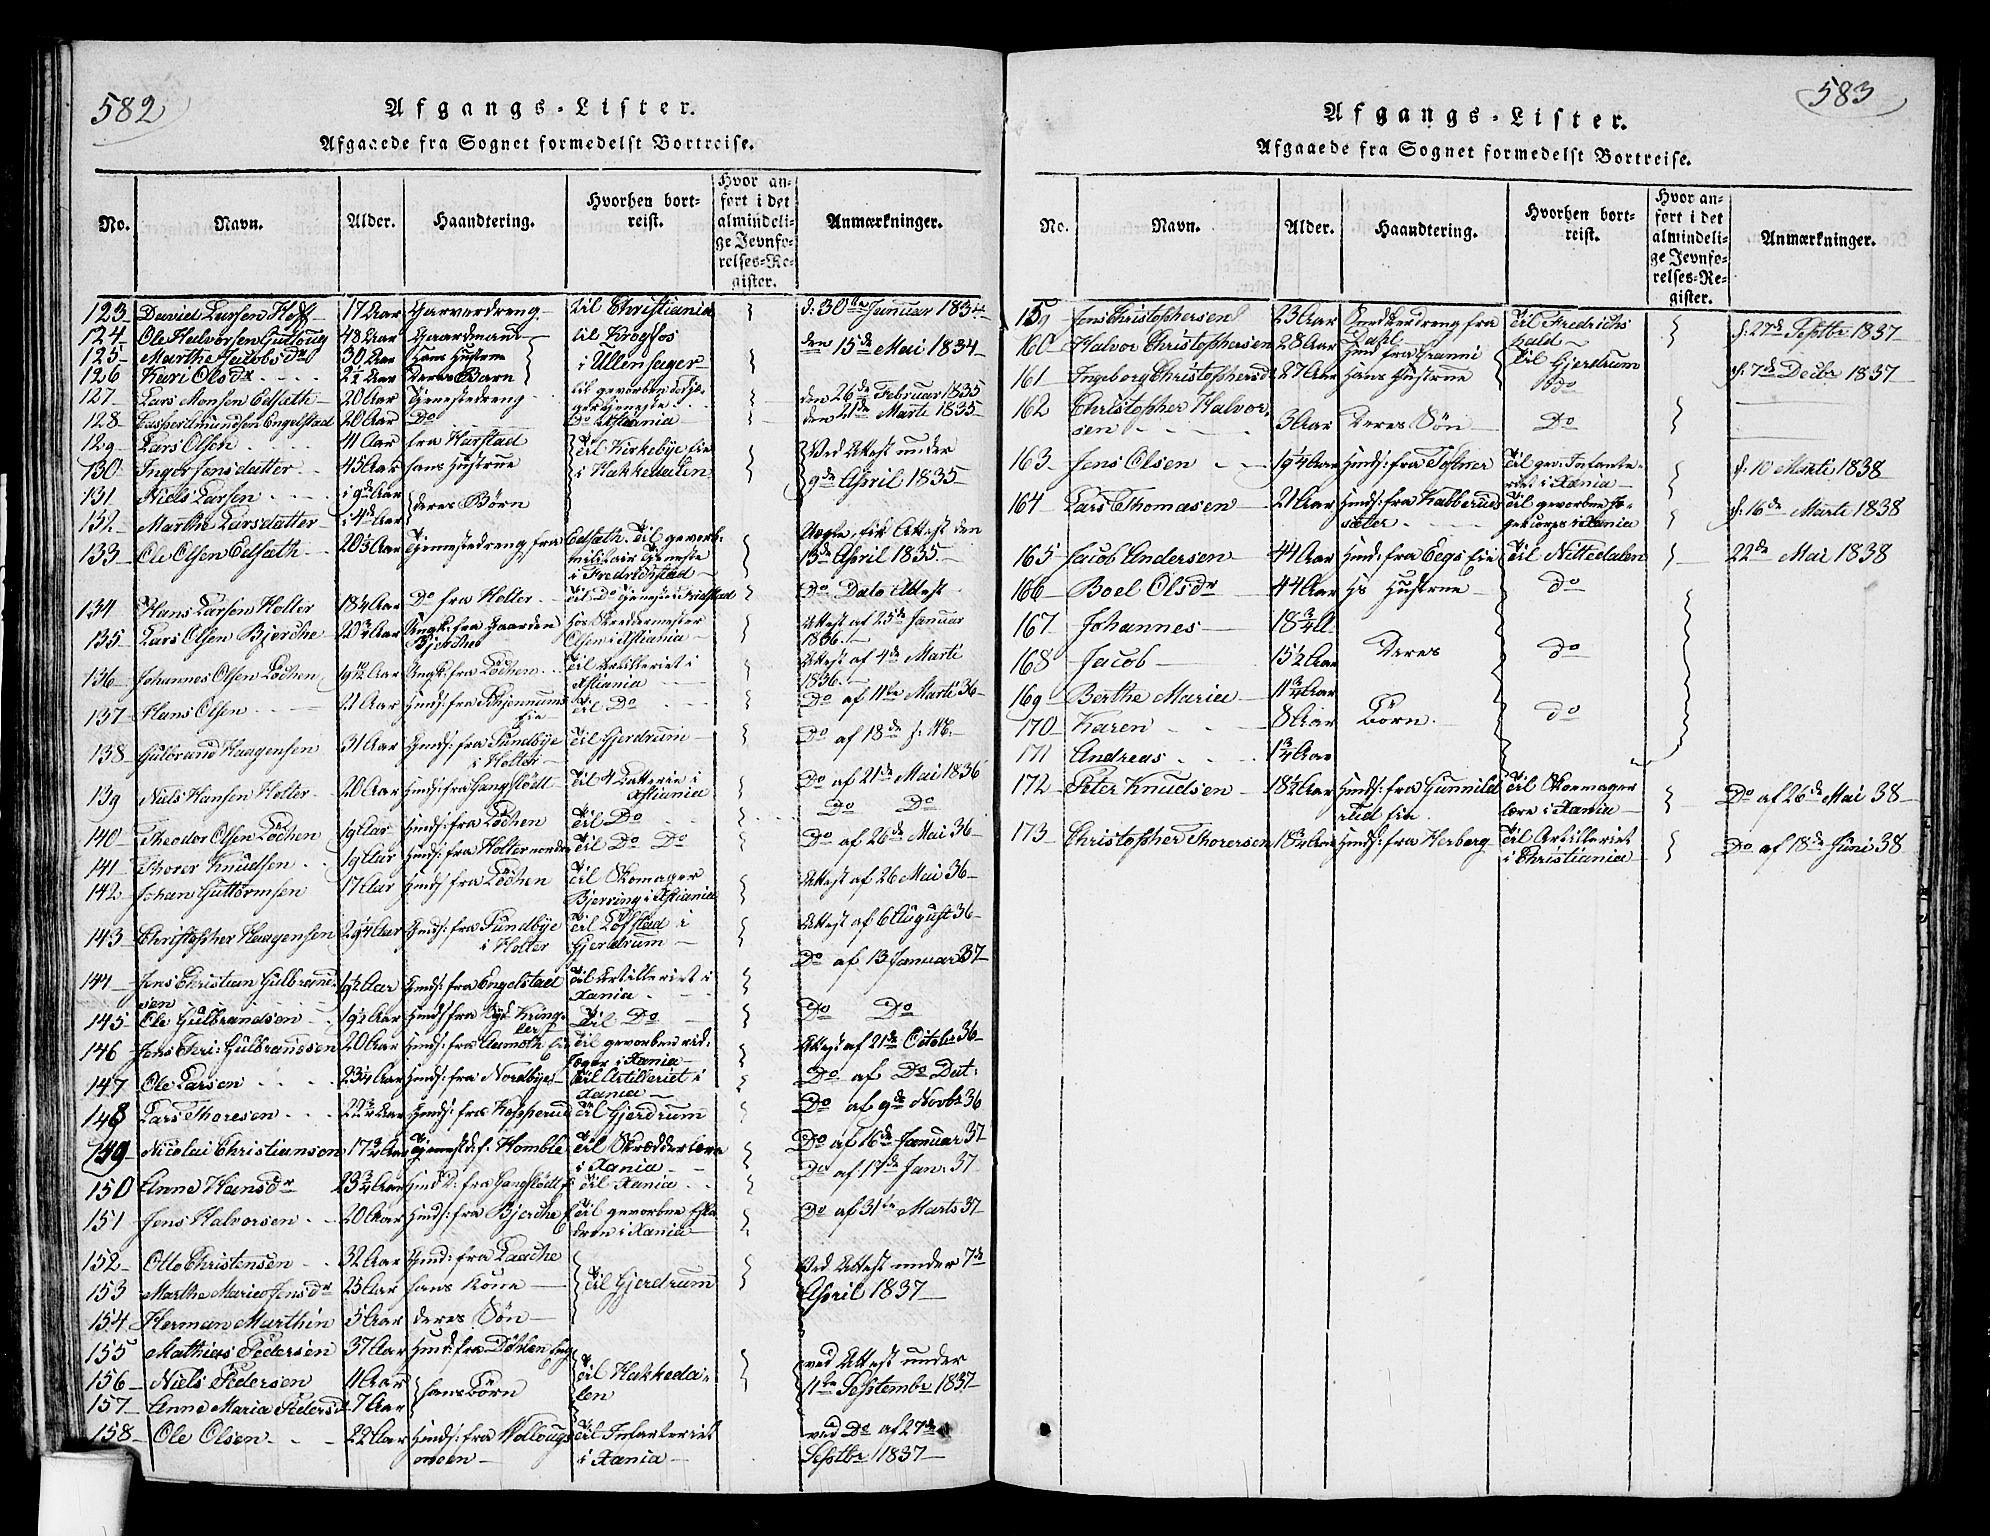 582
Afgangs-Lister.
Afgaaede fra Sognet formedelst Bortreise.
No. Navn. Alder. Haandtering. Hvorhen bortreist. Hvor anført i det almindelige Jevnførelses-Register. Anmærkninger.
123 David Larsen Hoft 17 Aar Garverdreng til Christiania d: 30te Januar 1834
124 Ole Halvorsen Guttoug 48 Aar Gaardmand til Krogfos den 15de Mai 1834
125 Marthe Jacobsdr 30 Aar Hans Hustrue i Ullensager
126 Kari Olsdr 2½ Aar Deres Barn
127 Lars Monsen Edsath 20 Aar Tjenestedreng til gevorben den 26de Februar 1835
128 Engelstad 20 Aar Do Do Xstiania den 21de Marti 1835
129 Lars Olsen 41 Aar fra Harstad til Kirkebye Eie Ved Attest under
130 Inger Jensdatter 45 Aar hans Hustrue i Hakkedalen 9de April 1835
131 Niels Larsen i 9de Aar deres Børn
132 Marthe Larsdatter i 4de Aar
133 Ole Olsen Edsath 20½ Aar Tjenestedreng fra Edsath Til gevorb. fik Attest den
militair Tjeneste 13de April 1835
i Fredrichstad
134 Hans Larsen Holter 18¼ Aar Do fra Holter Til Do Tjeneste i Do Dato Attest
135 Lars Olsen Bjerche 20¾ Aar Ungk: fra Gaarden hos Skreddermester Attest af 25de Januar
Bjerches Olsen i Xstiania 1836.
136 Johannes Olsen Løchen Ungk: fra Løchen Til Artilleriet i Attest af 4de Marti
Xstiania 1836.
137 Hans Olsen 21 Aar Inds: fra Til Do Do af 11te Marti 36
Eie
138 Gulbrand Haagensen 31 Aar Inds: fra Sundbye Til Gjerdrum Do af 18de s: M:
i Holter
139 Niels Hansen Holter 20 Aar Inds: fra Til 4 Batterie i Do af 21de Mai 1836
Xstiania Do Do
140 Theodor Olsen Løchen 19 Aar Inds: fra Løchen Til Do Do af 26de Mai 36
141 Thorer Knudsen 19 Aar Inds: fra Holter nordre Til Do Do
142 Johan Guttormsen 17 Aar Inds: fra Løchen Til Skomager Attest af 26 Mai 36
Bjerring i Xstiania
143 Christopher Haagensen 29¼ Aar Inds: fra Sundbye Til Løfstad i Attest af 6 August 36
i Holter Gjerdrum
Do af 13 Januar 37
144 Jens Christian Gulbrand- 19½ Aar Inds: fra Engelstad Til Artilleriet i
sen Xania
145 Ole Gulbrandsen 19½ Aar Inds: fra Syd Kring- Til Do Do Do
ler
146 Jens Fri: Gulbrandsen 20 Aar Inds: fra Aamoth Eie Til gevorben rid. Attest af 21de Octobr 36
Jæger i Xania
147 Ole Larsen 23¼ Aar Inds: fra Nordbye Til Artilleriet i Do af Do Dat:
Xania
148 Lars Thoresen 22¾ Aar Inds: fra Kopperud Til Gjerdrum Do af 9de Novbr 36
149 Nicolai Christiansen 17¾ Aar Tjenestd: f. Homble Til Skrædderlære Do af 16de Januar 37
i Xania Do af 17de Jan: 37
150 Anne Hansdr 23¾ Aar Ind D: fra Til Xania
151 Jens Halvorsen 20 Aar Inds: fra Bjerche Til gevorbne Eska- Do af 31te Marts 37
dron i Xania
152 Otto Christensen 32 Aar Ind: fra Laache Ved Attest under 7de
153 Marthe Marie Jensdr 25 Aar hans Kone Til Gjerdrum April 1837
154 Herman Marthin 5 Aar deres Søn
155 Mathias Pedersen 37 Aar Ind: fra Døhlen Til Hakkeda- ved Attest under
156 Niels Pedersen 11 Aar hans Børn len 11te Septembr 1837
157 Anne Maria Pedersdr 7 Aar
158 Ole Olsen 22 Aar Inds: fra Wollougs Til Infanteriet ved Do af 27de
moen i Xania Septbr 1837
583
Afgangs-Lister.
Afgaaede fra Sognet formedelst Bortreise.
No. Navn. Alder. Haandtering. Hvorhen bortreist. Hvor anført i det almindelige Jevnførelses-Register. Anmærkninger.
159 Jens Christophersen 23 Aar Smededreng fra Til Fredrichs d: 27de Septbr 1837
hald
160 Halvor Christophersen 28 Aar Ind: fra Til Gjerdrum d: 7de Decbr 1837
161 Ingeborg Christophersd: 27 Aar Hans Hustrue do
162 Christopher Halvor-
sen 3 Aar Deres Søn Do
163 Jens Olsen 19¼ Aar Inds: fra Toftner Til gev: Infante- d: 10 Marti 1838
riet i Xania
164 Lars Thomæsen 21 Aar Inds: fra Kabberud Til gevorbne Jæ- d: 16de Marti 1838
sæter gerkorps i Xania
165 Jacob Andersen 44 Aar Ind: fra Eegs Eie Til Nittedalen 22de Mai 1838
166 Boel Olsdr 44 Aar Hs Hustrue do
167 Johannes 18¾ A
168 Jacob 15½ Aar Deres do
169 Berthe Marie 11¾ Aar
170 Karen 8 Aar Børn do
171 Andreas 1¾ Aar
172 Peter Knudsen 18½ Aar Inds: fra Gunnild Til Skomager Do af 26de Mai 38
rud Eie lære i Xania
173 Christopher Thoresen 18¾ Aar Inds: fra Herberg Til Artilleriet Do af 18de Juni 38
i Christiania